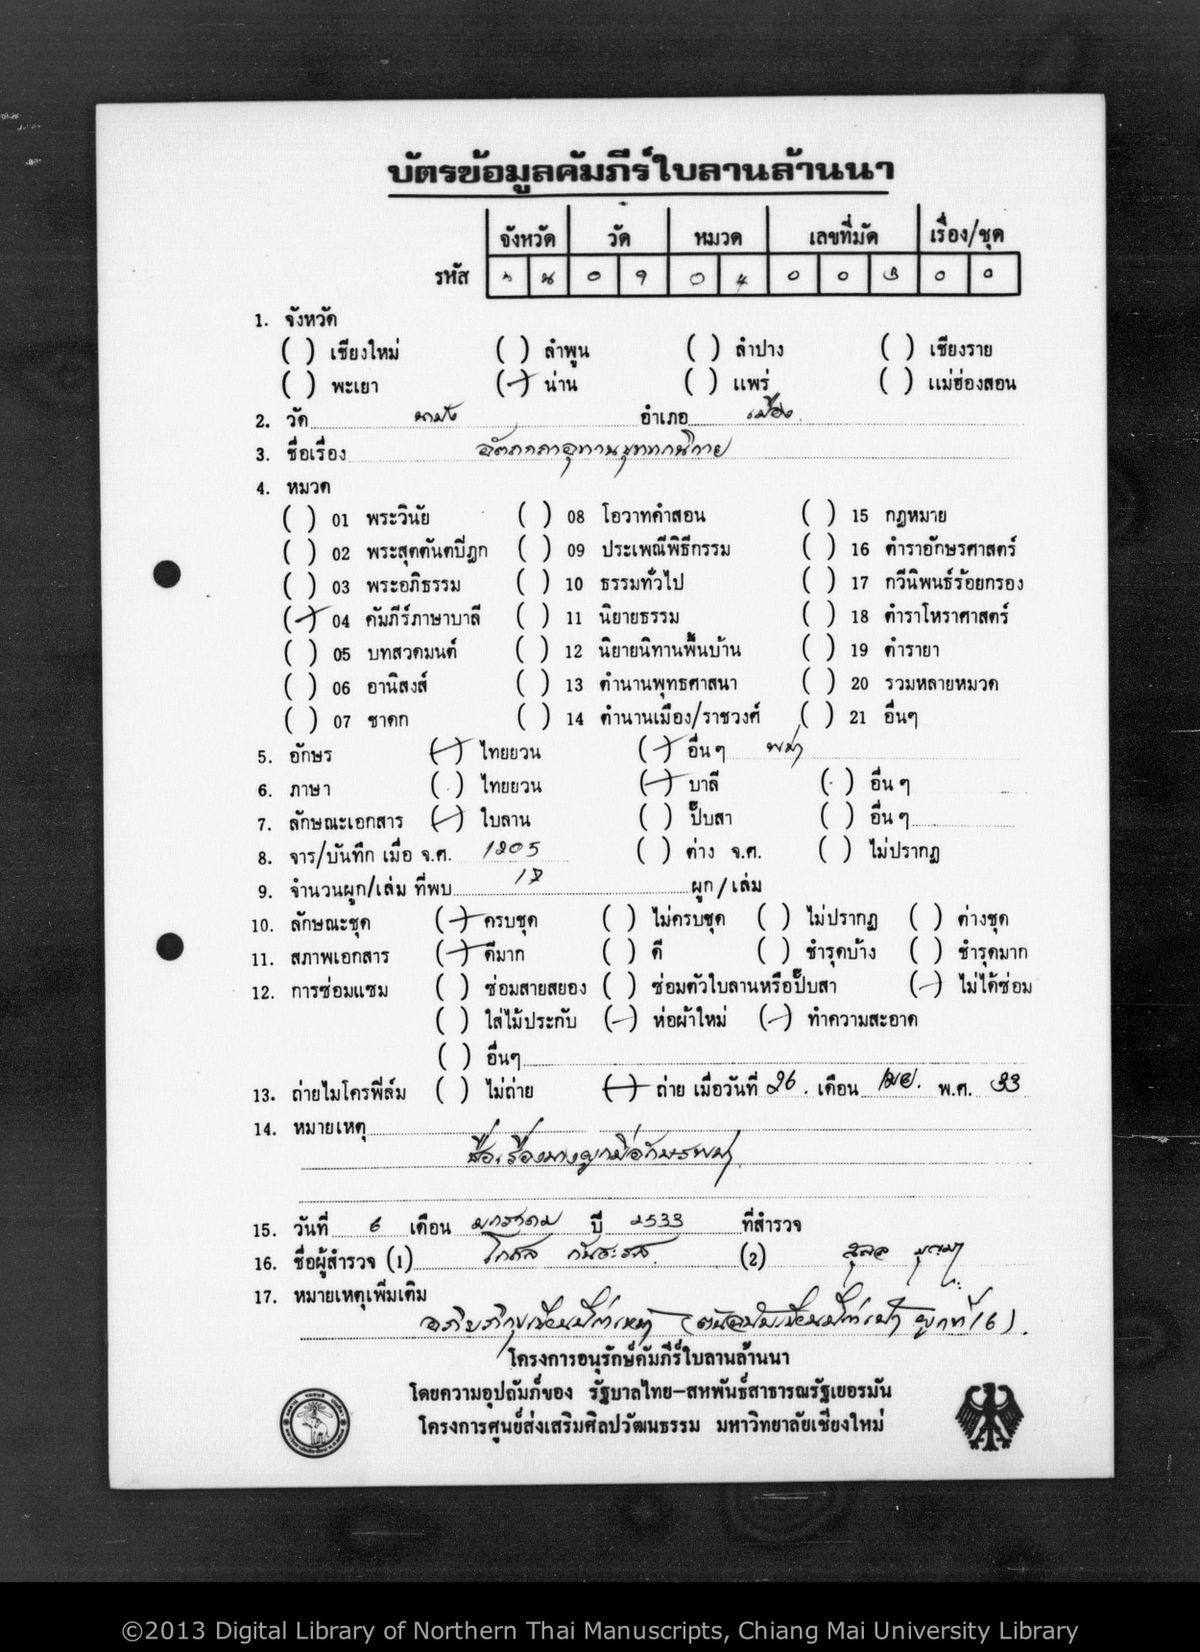 บัตรข้อมูลคัมภีร์ใบลานล้านนา
จังหวัด วัด หมวด เลขที่มัด เรื่อง/ชุด
รหัส น น 0 9 0 4 0 0 3 0 0
1. จังหวัด
( ) เชียงใหม่ ( ) ลำพูน ( ) ลำปาง ( ) เชียงราย
( ) พะเยา (/) น่าน ( ) แพร่ ( ) แม่ฮ่องสอน
2. วัด อำเภอ เมือง
3. ชื่อเรื่อง อัตถกถาอุทานขุททกนิกาย
4. หมวด
( ) 01 พระวินัย ( ) 08 โอวาทคำสอน ( ) 15 กฎหมาย
( ) 02 พระสุตตันตปิฎก ( ) 09 ประเพณีพิธีกรรม ( ) 16 ตำราอักษรศาสตร์
( ) 03 พระอภิธรรม ( ) 10 ธรรมทั่วไป ( ) 17 กวีนิพนธ์ร้อยกรอง
(/) 04 คัมภีร์ภาษาบาลี ( ) 11 นิยายธรรม ( ) 18 ตำราโหราศาสตร์
( ) 05 บทสวดมนต์ ( ) 12 นิยายนิทานพื้นบ้าน ( ) 19 ตำรายา
( ) 06 อานิสงส์ ( ) 13 ตำนานพุทธศาสนา ( ) 20 รวมหลายหมวด
( ) 07 ชาดก ( ) 14 ตำนานเมือง/ราชวงศ์ ( ) 21 อื่นๆ
5. อักษร (/) ไทยยวน (/) อื่นๆ พม่า
6. ภาษา ( ) ไทยยวน (/) บาลี ( ) อื่นๆ
7. ลักษณะเอกสาร (/) ใบลาน ( ) ปั๊บสา ( ) อื่นๆ
8. จาร/บันทึก เมื่อ จ.ศ. 1205 ( ) ต่าง จ.ศ. ( ) ไม่ปรากฏ
9. จำนวนผูก/เล่ม ที่พบ 17 ผูก/เล่ม
10. ลักษณะชุด (/) ครบชุด ( ) ไม่ครบชุด ( ) ไม่ปรากฏ ( ) ต่างชุด
11. สภาพเอกสาร (/) ดีมาก ( ) ดี ( ) ชำรุดบ้าง ( ) ชำรุดมาก
12. การซ่อมแซม ( ) ซ่อมสายสยอง ( ) ซ่อมตัวใบลานหรือปั๊บสา (/) ไม่ได้ซ่อม
( ) ใส่ไม้ประกับ (/) ห่อผ้าใหม่ (/) ทำความสะอาด
( ) อื่นๆ
13. ถ่ายไมโครฟิล์ม ( ) ไม่ถ่าย (/) ถ่าย เมื่อวันที่ 26 เดือน เมย. พ.ศ. 33
14. หมายเหตุ
ชื่อเรื่องบางผูกมีอักษรพม่า
15. วันที่ 6 เดือน มกราคม ปี 2533 ที่สำรวจ
16. ชื่อผู้สำรวจ (1) (2)
17. หมายเหตุเพิ่มเติม
ผูกที่ 16).
โครงการอนุรักษ์คัมภีร์ใบลานล้านนา
โดยความอุปถัมภ์ของ รัฐบาลไทย-สหพันธ์สาธารณรัฐเยอรมัน
โครงการศูนย์ส่งเสริมศิลปวัฒนธรรม มหาวิทยาลัยเชียงใหม่
©2013 Digital Library of Northern Thai Manuscripts, Chiang Mai University Library